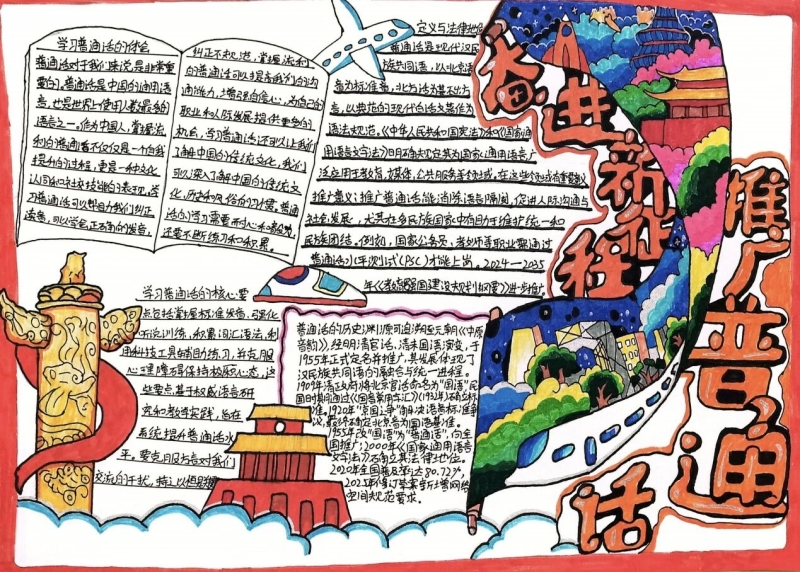 推广普通话
奋进新征程
学习普通话的体会
普通话对于我们来说是非常重
要的。普通话是中国的通用语
言，也是世界上使用人数最多的
语言之一。作为中国人，掌握流利
的普通话不仅仅是一个自我
提升的过程，更是一种文化
认同和社交技能的表现。学
习普通话可以帮助我们纠正
读音，可以学会正确的发音。
纠正不规范，掌握流利
的普通话可以提高我们的沟
通能力，增强自信心，为自己的
职业和人际发展提供更多的
机会。学习普通话还可以让我们
了解中国的传统文化，我们
可以深入了解中国的传统文
化、历史和风俗的了解。普通
话的学习需要耐心和毅力，
还要不断练习和积累。
定义与法律地位
普通话是现代汉民
族共同语，以北京语
音为标准音，北方话为基础方
言，以典范的现代白话文著作为
语法规范。《中华人民共和国宪法》和《国家通
用语言文字法》明确规定其为国家通用语言，广
泛应用于教育、媒体、公共服务等领域，在这些领域有重要意义
推广意义：推广普通话能消除语言隔阂，促进人际沟通与
社会发展，尤其在多民族国家中有助于维护统一和
民族团结。例如，国家公务员、教师等职业需通过
普通话水平测试(PSC)才能上岗。2024—2035
年《教育强国建设规划纲要》进一步推广
学习普通话的核心要
点包括掌握标准发音、强化
听说训练、积累词汇语法、利
用科技工具辅助练习，并克服
心理障碍保持积极心态，这
些要点基于权威语言研
究和教学实践，旨在
系统提升普通话水
平。要克服方言对我们
交流的干扰，持之以恒
普通话的历史渊源可追溯至元朝《中原
音韵》，经明清官话、清末国语演变，于
1955年正式定名并推广，其发展体现了
汉民族共同语的融合与统一进程。
1909年清政府将北京官话命名为"国语"民
国时期通过《国音常用字汇》(1932年)确立标
准。1920年"京国之争"解决语音标准争
议，最终确定北京音为国语基准。
1955年改"国语"为"普通话"，向全
国推广；2000年《国家通用语言
文字法》确立其法律地位。
2020年全国普及率达80.72%。
2025年修订草案新增网络
空间规范要求。